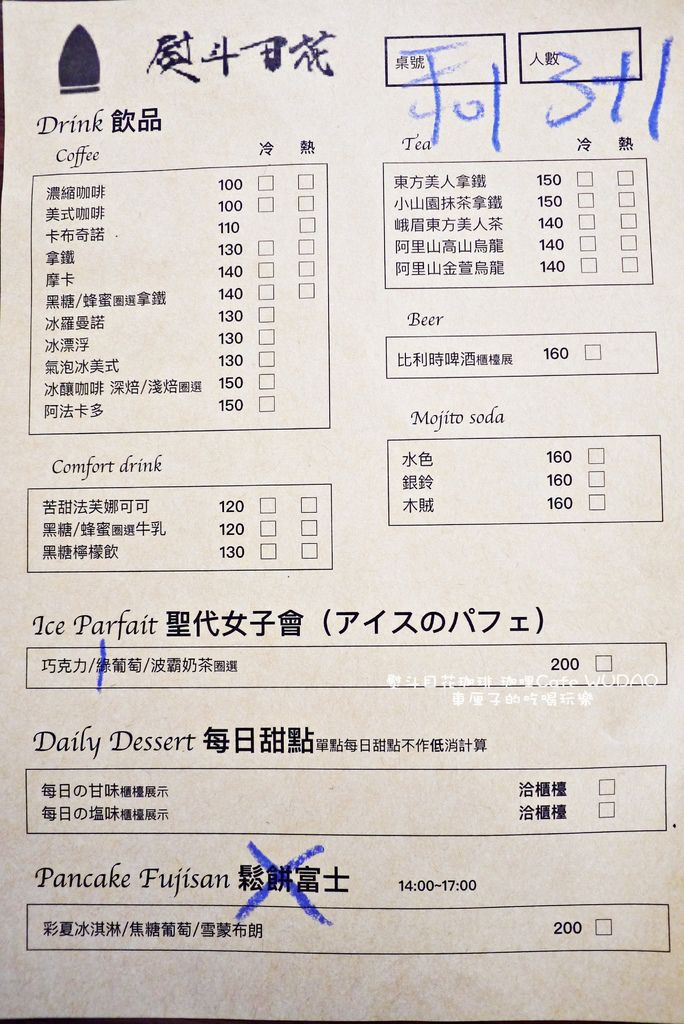 熨斗目花
桌號
人數 3+1
Drink 飲品
Coffee 冷 熱
濃縮咖啡 100
美式咖啡 100
卡布奇諾 110
拿鐵 130
摩卡 140
黑糖/蜂蜜圈選拿鐵 140
冰羅曼諾 130
冰漂浮 130
氣泡冰美式 130
冰釀咖啡 深焙/淺焙圈選 150
阿法卡多 150
Tea 冷 熱
東方美人拿鐵 150
小山園抹茶拿鐵 150
峨眉東方美人茶 140
阿里山高山烏龍 140
阿里山金萱烏龍 140
Beer
比利時啤酒櫃檯展 160
Mojito soda
水色 160
銀鈴 160
木賊 160
Comfort drink
苦甜法芙娜可可 120
黑糖/蜂蜜圈選牛乳 120
黑糖檸檬飲 130
Ice Parfait 聖代女子會（アイスのパフェ）
巧克力/綠葡萄/波霸奶茶圈選 200
熨斗目花珈琲 珈哩Cafe WUDAO
車厘子的吃喝玩樂
Daily Dessert 每日甜點單點每日甜點不作低消計算
每日の甘味櫃檯展示 洽櫃檯
每日の塩味櫃檯展示 洽櫃檯
Pancake Fujisan 鬆餅富士 14:00~17:00
彩夏冰淇淋/焦糖葡萄/雪蒙布朗 200